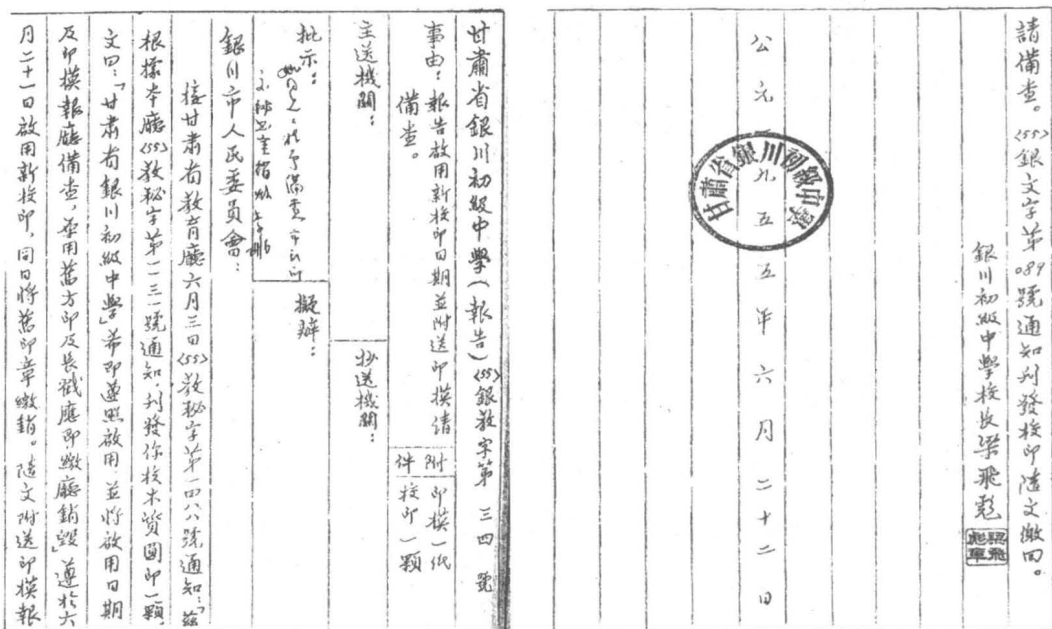 甘肅省銀川初級中學(報告)<55>銀教字第三四號
事由：報告啟用新校印日期並附送印摸請
備查。
附件
印摸一紙
校印一顆
主送機關：
抄送機關：
批示：
擬辦：
銀川市人民委員會：
接甘肅省教育廳六月三日<55>教秘字第一四八八號通知：「茲
根據本廳<55>教秘字第一一三一號通知，刊發你校木質圓印一顆，
文曰：「甘肅省銀川初級中學」希即遵照啟用，並將啟用日期
及印摸報廳備查，原用舊方印及長戳應即繳廳銷毀」遵於六
月二十一日啟用新校印，同日將舊印章繳銷。隨文附送印摸報
請備查。<55>銀文字第089號通知刋發校印隨文繳回。
銀川初級中學校長梁飛彪
梁飛彪章
公元一九五五年六月二十二日
甘肅省銀川初級中學